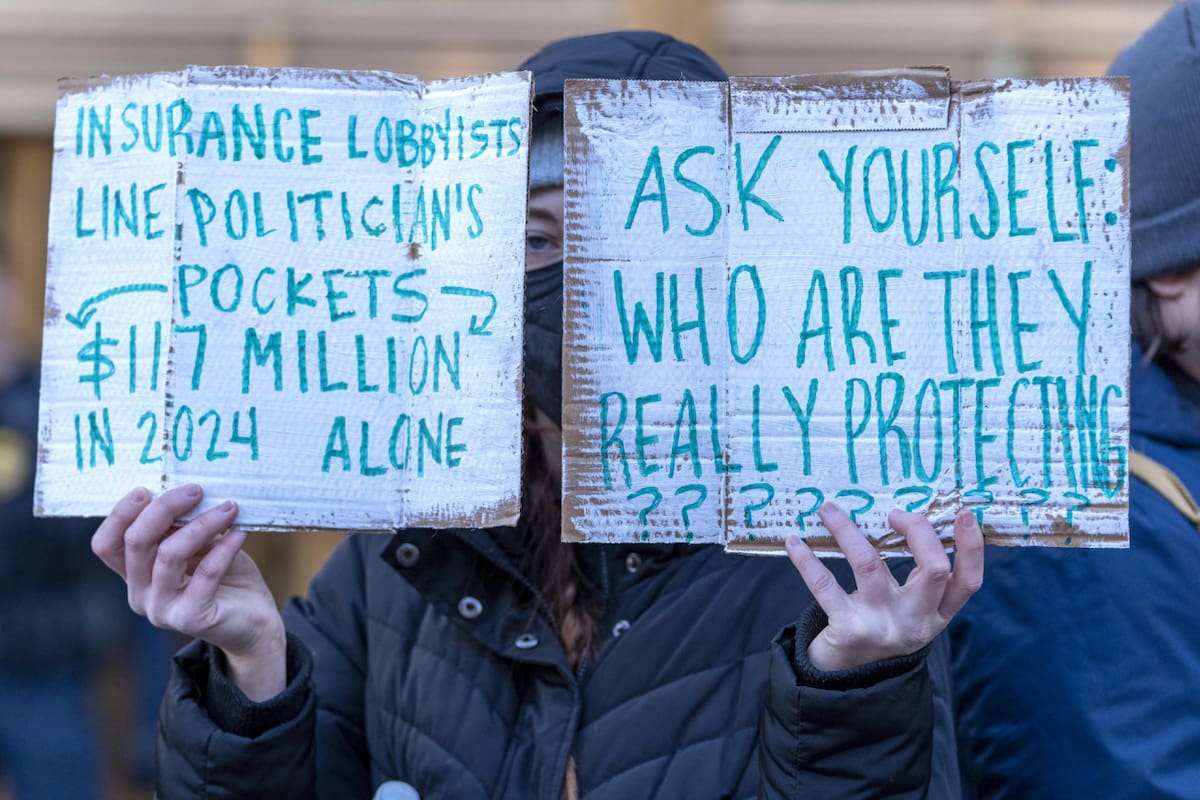 INSURANCE LOBBYISTS
LINE POLITICIAN'S
POCKETS
$117 MILLION
IN 2024 ALONE
ASK YOURSELF:
WHO ARE THEY
REALLY PROTECTING
?????????